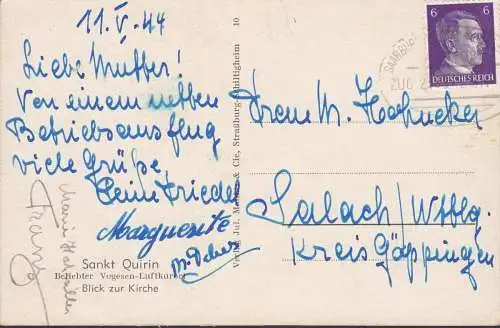 11.V.44
Liebe Mutter!
Von einem netten
Betriebsausflug
viele Grüße,
Deine Friedel
Marguerite
Franz
Sankt Quirin
Beliebter Vogesen-Luftkurort
Blick zur Kirche
Verlag Jul. & Cie, Straßburg-Schiltigheim 10
6 6
DEUTSCHES REICH
ZUG
Frau M.
Salach/Wttbg.
Kreis Göppingen